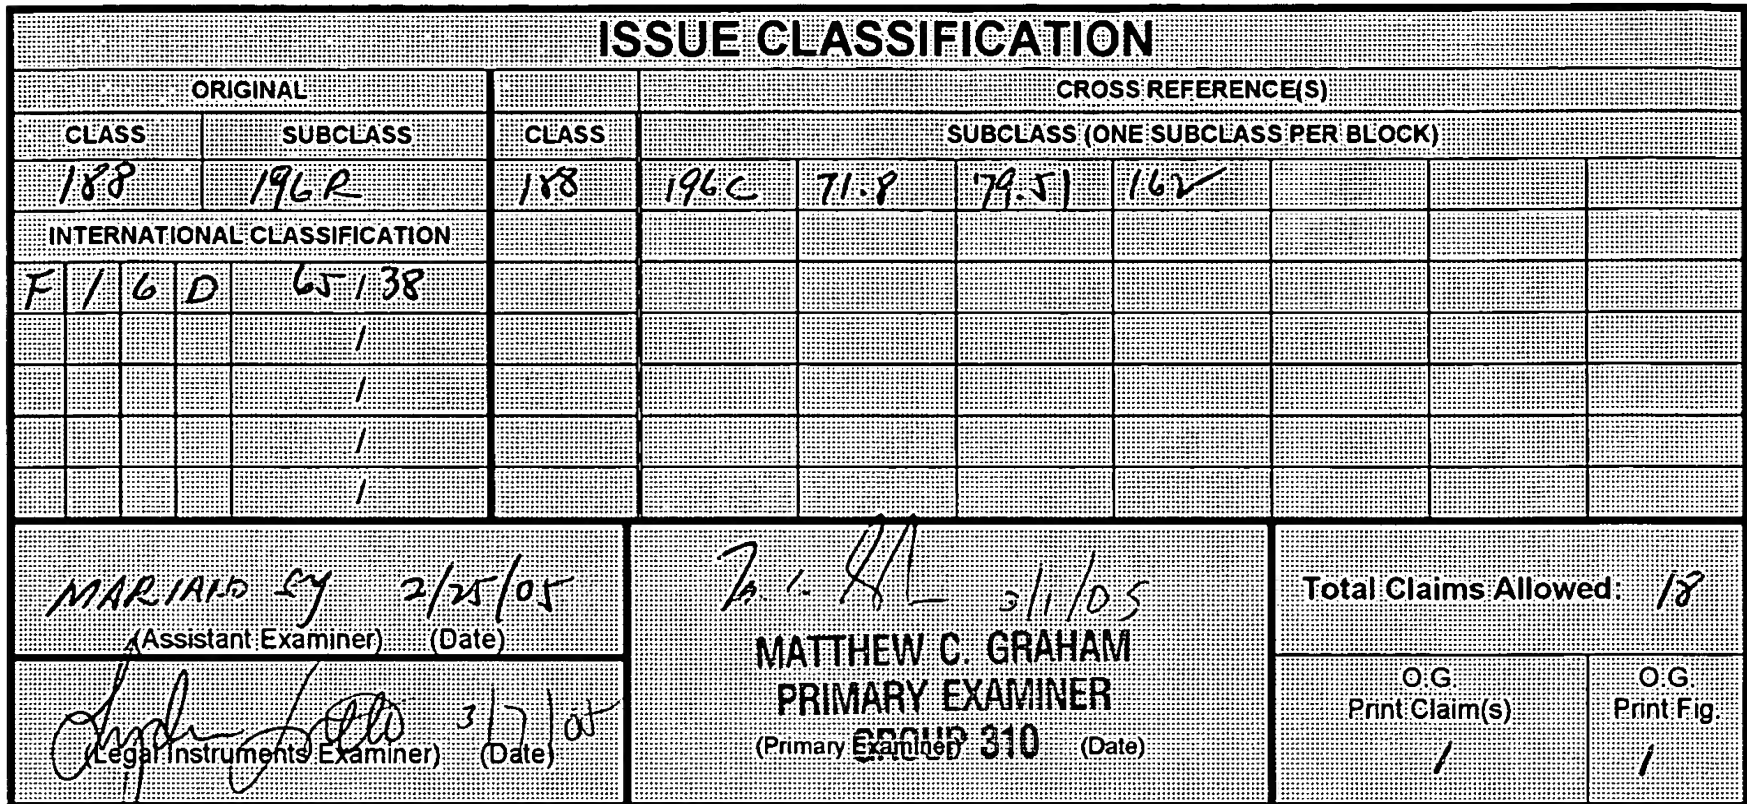 ISSUE CLASSIFICATION
ORIGINAL CROSS REFERENCE(S)
CLASS SUBCLASS CLASS SUBCLASS (ONE SUBCLASS PER BLOCK)
188 196R 188 196C 71.8 79.51 162
INTERNATIONAL CLASSIFICATION
F 1 6 D 65 / 38
/
/
/
/
MARIANO SY 2/25/05
(Assistant Examiner) (Date)
3/7/05
(Legal Instruments Examiner) (Date)
3/1/05
MATTHEW C. GRAHAM
PRIMARY EXAMINER
GROUP 310
(Primary Examiner) (Date)
Total Claims Allowed: 18
O.G. Print Claim(s)
1
O.G. Print Fig.
1